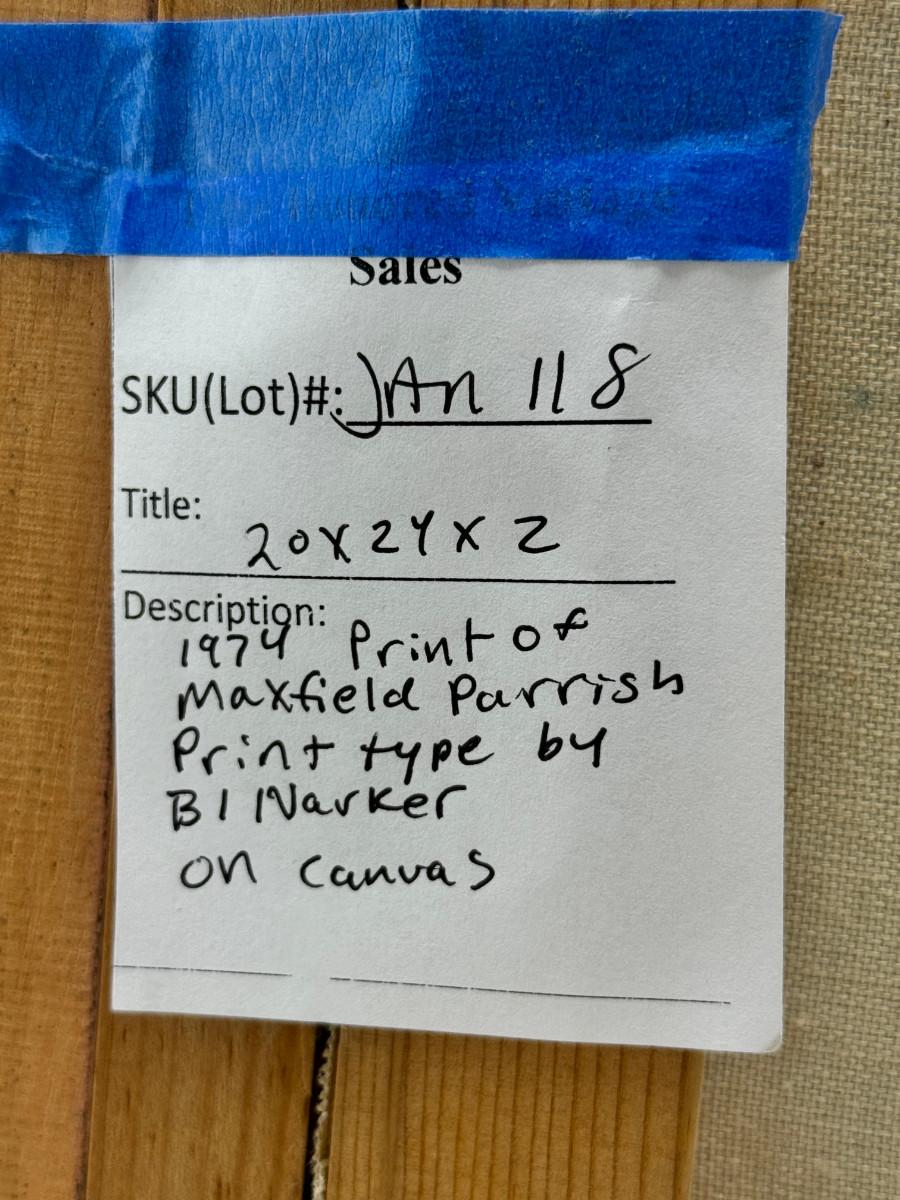 Honored Vintage
Sales
SKU(Lot)#: JAn 118
Title:
20x24x2
Description:
1974 Print of
Maxfield Parrish
Print type by
B I Narker
on canvas